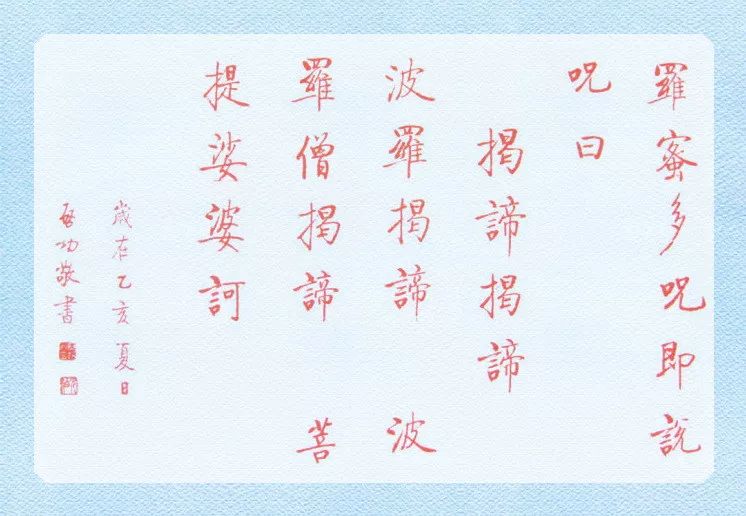 羅蜜多呪即説
呪曰
揭諦揭諦
波羅揭諦 波
羅僧揭諦 菩
提娑婆訶
歲在乙亥夏日
启功敬書